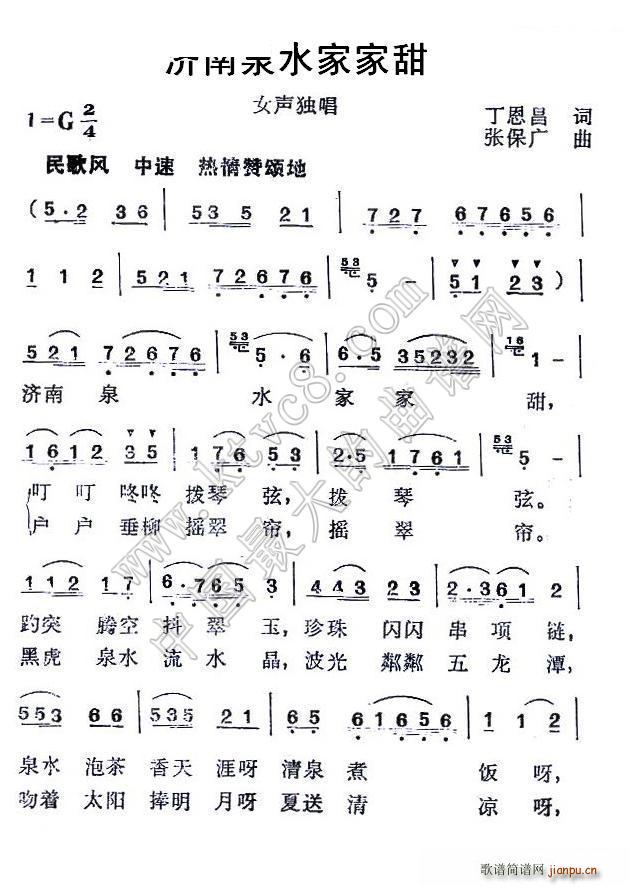 济南泉水家家甜
女声独唱
1=G 2/4
丁恩昌 词
张保广 曲
民歌风 中速 热情赞颂地
(5·2 36 | 535 21 | 727 67656 |
112 | 521 72676 | 53 5 - | 51 23) |
521 72676 | 53 6·6 | 6·5 35232 | 16 1 - |
济南 泉 水 家 家 甜,
1612 35 | 176 53 | 2·5 1761 | 53 5 - |
叮叮咚咚 拨琴弦, 拨琴弦。
户户垂柳 摇翠帘, 摇翠帘。
112 17 | 6·765 3 | 443 23 | 2·361 2 |
趵突腾空抖翠玉, 珍珠闪闪串项链,
黑虎泉水流水晶, 波光粼粼五龙潭,
553 66 | 535 21 | 3 6 | 7656 | 112 |
泉水泡茶香天涯呀 清泉煮饭呀,
吻着太阳捧明月呀 夏送清凉呀,
www.ktvc8.com
中国最大的曲谱网
歌谱简谱网 jianpu.cn